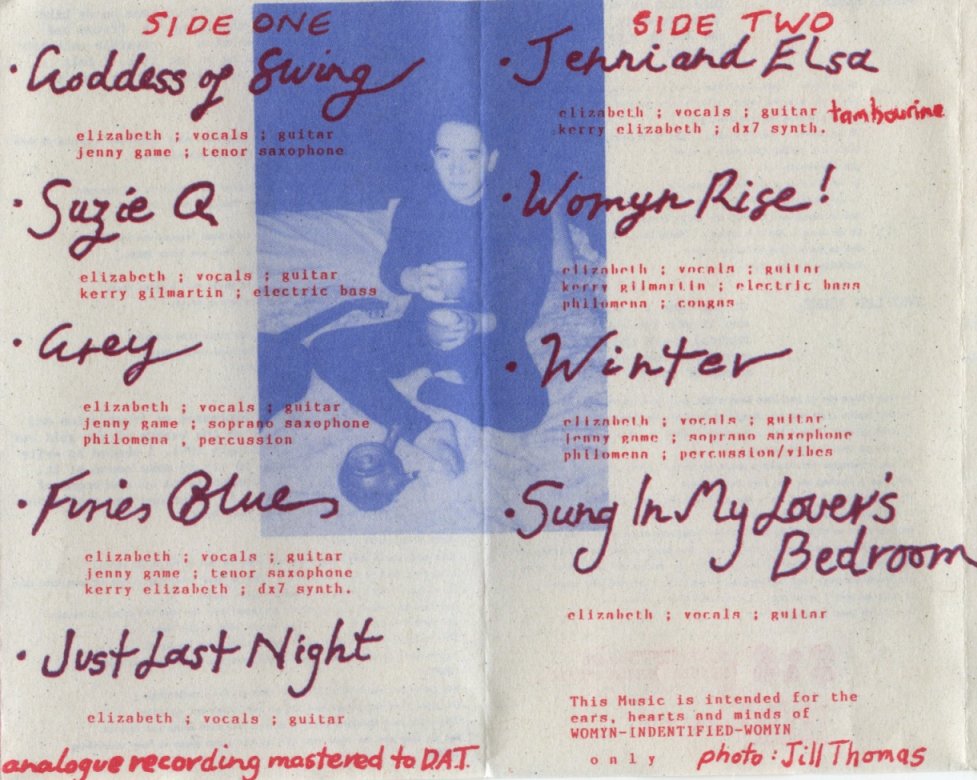 SIDE ONE
• Goddess of Swing
elizabeth ; vocals ; guitar
jenny game ; tenor saxophone
• Suzie Q
elizabeth ; vocals ; guitar
kerry gilmartin ; electric bass
• Grey
elizabeth ; vocals ; guitar
jenny game ; soprano saxophone
philomena , percussion
• Furies Blues
elizabeth ; vocals ; guitar
jenny game ; tenor saxophone
kerry elizabeth ; dx7 synth.
• Just Last Night
elizabeth ; vocals ; guitar
analogue recording mastered to D.A.T.
SIDE TWO
• Jenni and Elsa
elizabeth ; vocals ; guitar tambourine
kerry elizabeth ; dx7 synth.
• Womyn Rise!
elizabeth ; vocals ; guitar
kerry gilmartin ; electric bass
philomena ; congas
• Winter
elizabeth ; vocals ; guitar
jenny game ; soprano saxophone
philomena ; percussion/vibes
• Sung In My Lover's
Bedroom
elizabeth ; vocals ; guitar
This Music is intended for the
ears, hearts and minds of
WOMYN-INDENTIFIED-WOMYN
only
photo : Jill Thomas